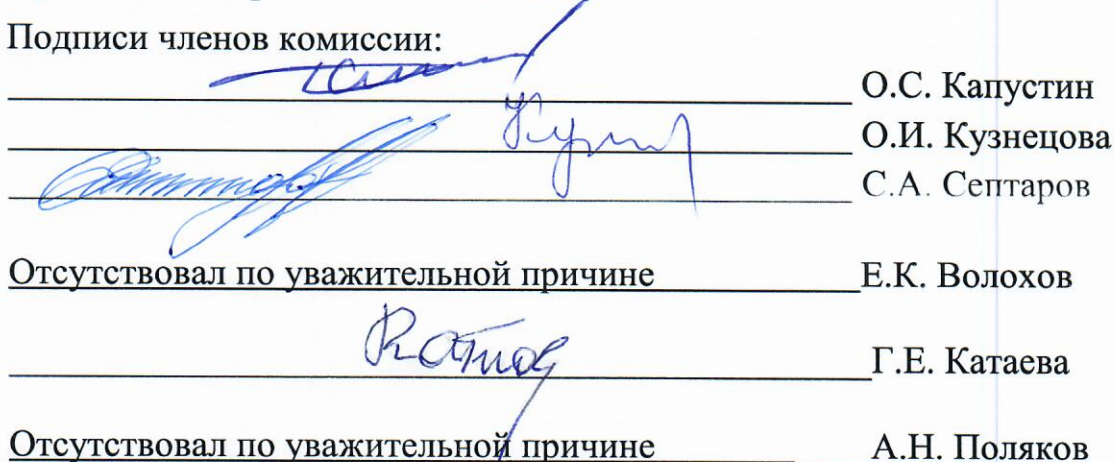 Подписи членов комиссии:
О.С. Капустин
О.И. Кузнецова
С.А. Септаров
Отсутствовал по уважительной причине Е.К. Волохов
Г.Е. Катаева
Отсутствовал по уважительной причине А.Н. Поляков